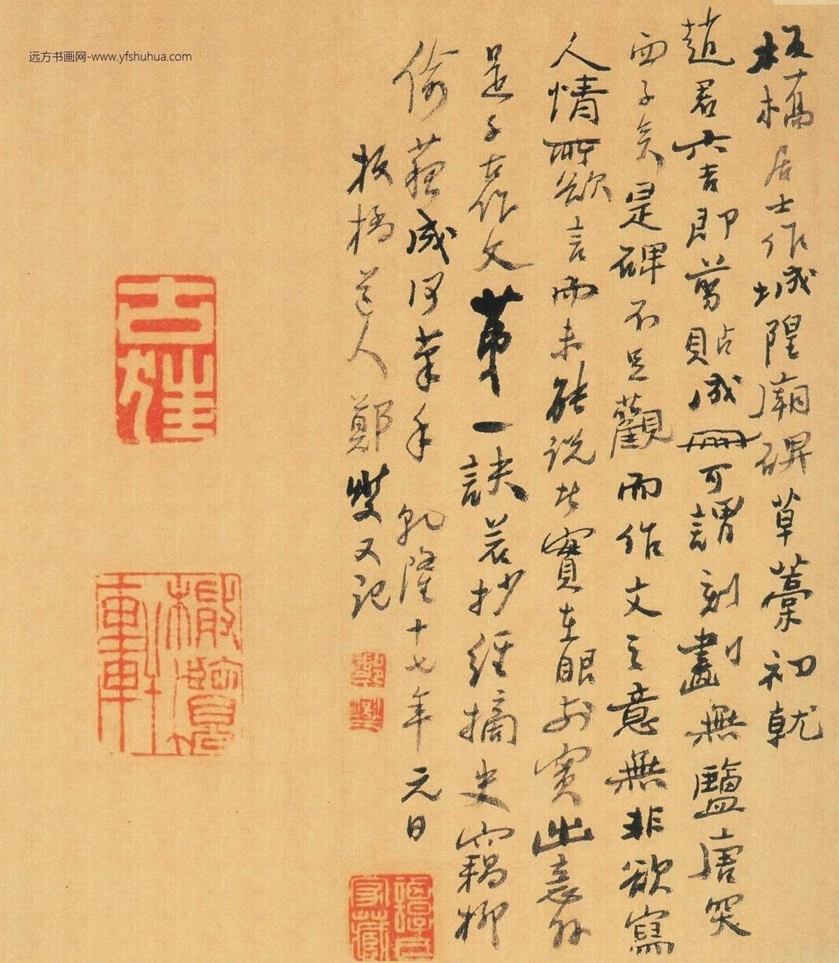 远方书画网-www.yfshuhua.com
板橋居士作城隍廟碑草藁初就
趙君六吉即剪貼成冊可謂刻畫無鹽唐突
西子矣是碑不足觀而作文之意無非欲寫
人情所欲言而未能說者實在眼前實出意外
是千古作文第一訣若抄經摘史竊柳
偷蘇成何筆手 乾隆十七年元日
板橋道人鄭燮又記
鄭燮